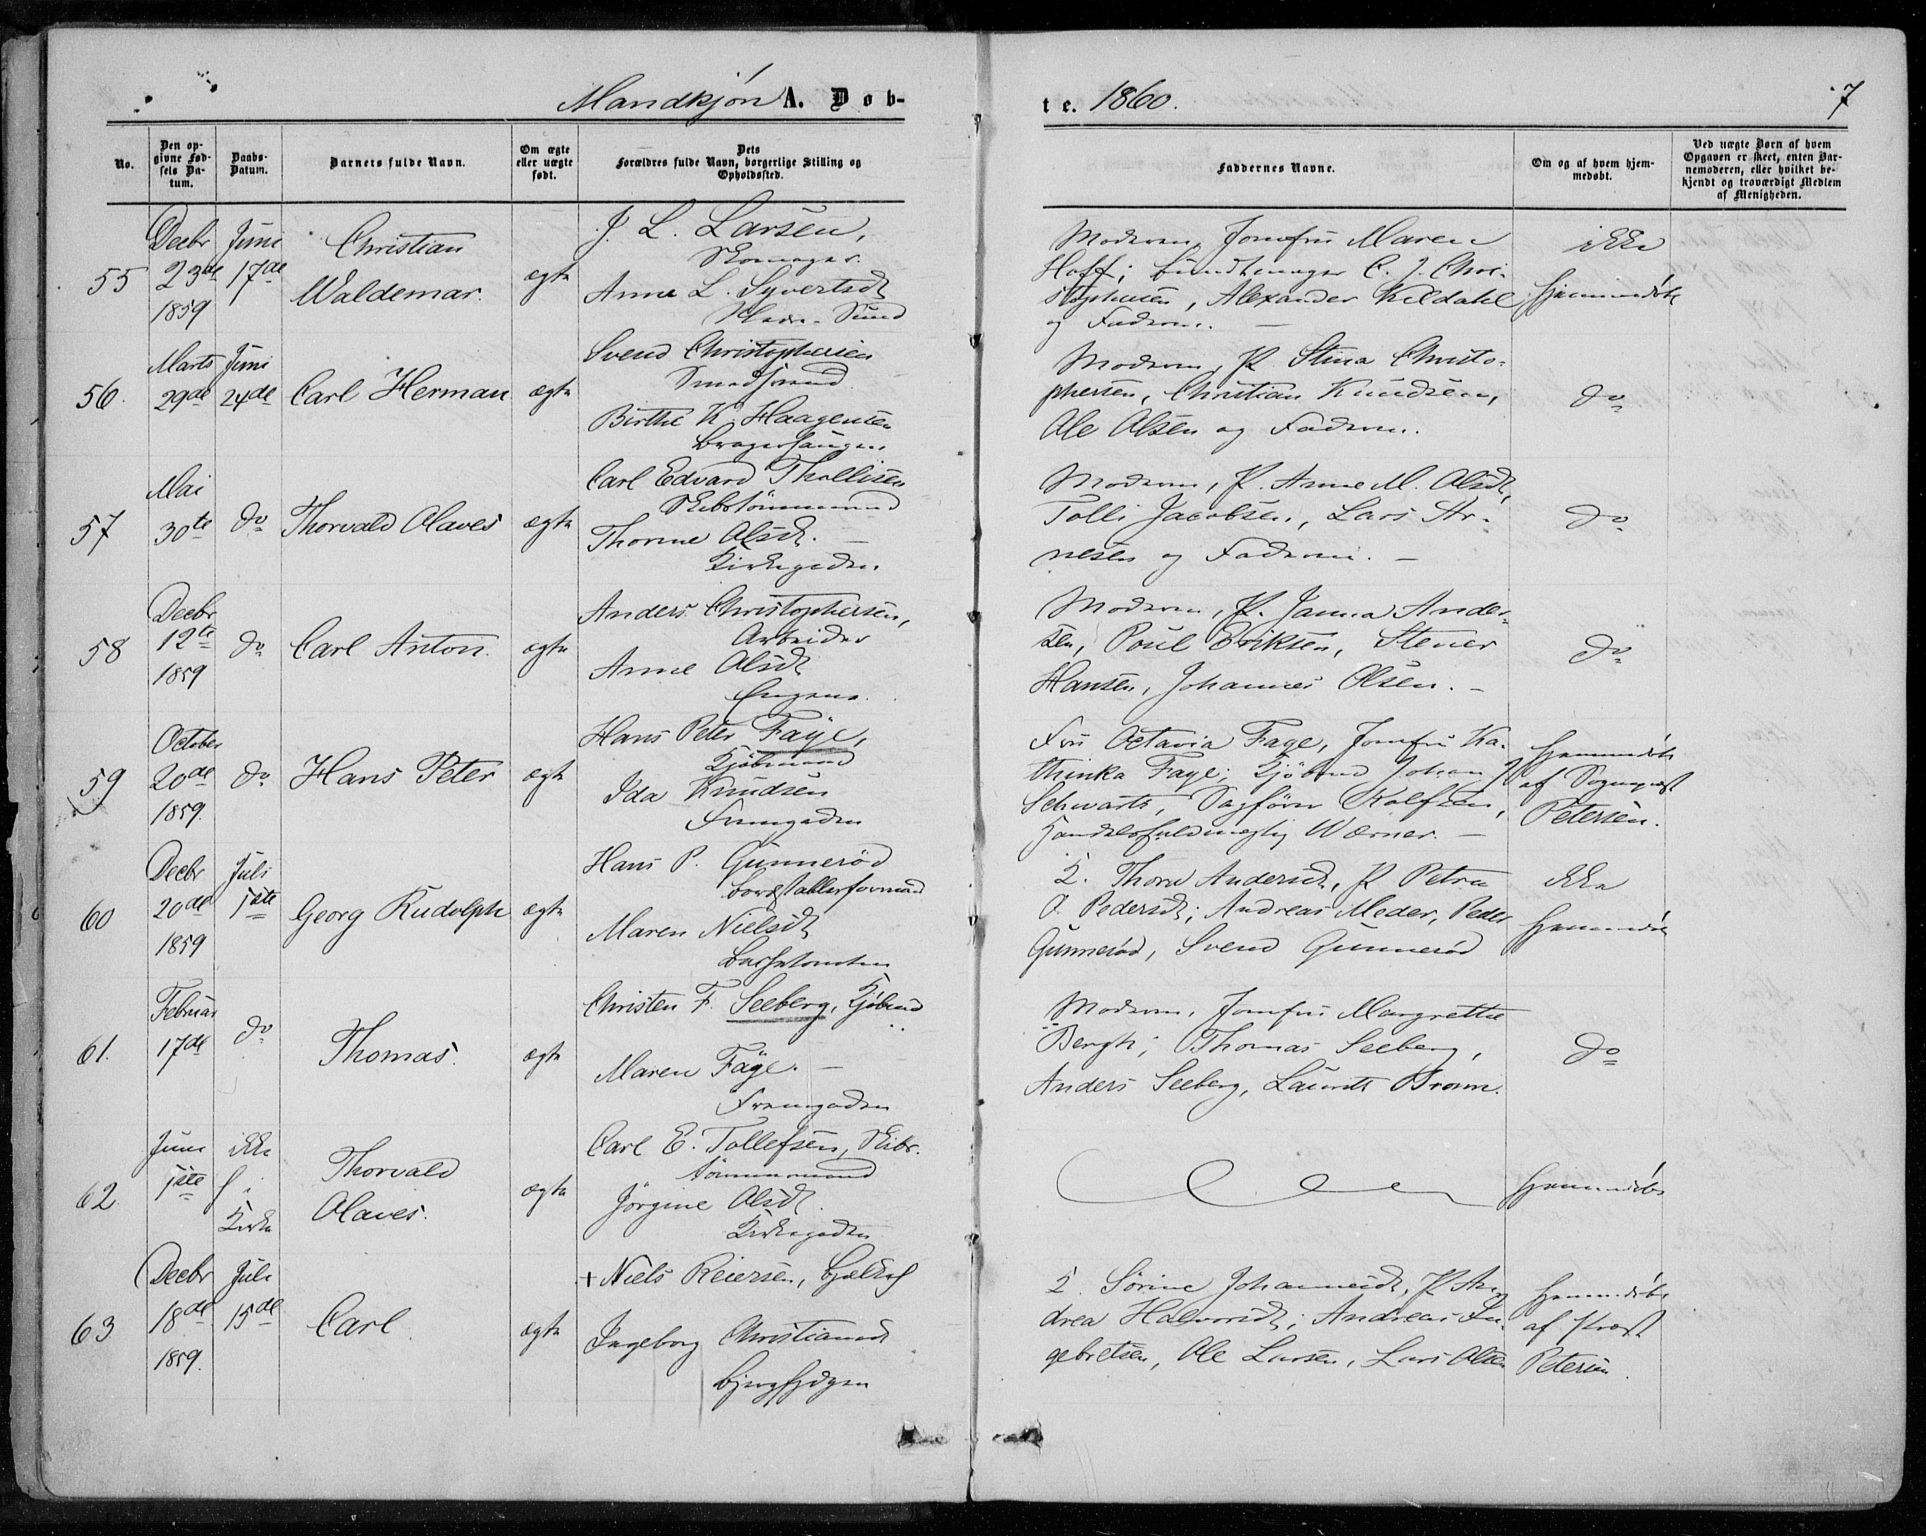 Mandkjøn A. Døb-
te. 1860. 7
No.
Den opgivne Fødsels Datum.
Daabs-Datum.
Barnets fulde Navn.
Om ægte eller uægte født.
Dets Forældres fulde Navn, borgerlige Stilling og Opholdssted.
Faddernes Navne.
Om og af hvem hjemmedøbt.
Ved uægte Børn af hvem Opgaven er skeet, enten Barnemoderen, eller hvilket bekjendt og troværdigt Medlem af Menigheden.
55
Decbr 23de 1859
Juni 17de
Christian
Waldemar.
ægte
J. L. Larsen,
Skomager.
Anne L. Syvertsdt
Sund
Moderen, Jomfru Maren
Hoff; Bundtmager C. J. Chri-
stophersen, Alexander Kildahl
og Faderen. —
ikke
hjemmedøbt
56.
Marts 29de
Juni 24de
Carl Herman
ægte
Svend Christophersen
Smedsvend
Birthe K. Haagensen
Moderen, P. Stina Christo-
phersen, Christian Knudsen,
Ole Olsen og Faderen.
do
57
Mai 30te
do
Thorvald Olaves
ægte
Carl Edvard Thollisen
Skibstømmermand
Thorine Olsdt. —
Kirkegaden.
Moderen, P. Anne M. Olsdt,
Tolli Jacobsen, Lars Ar-
nesen og Faderen. —
do
58
Decbr 12te 1859
do
Carl Anton.
ægte
Anders Christophersen,
Arbeider
Anne Olsdt
Engene.
Moderen, P. Janna Ander-
sen, Poul Eriksen, Stener
Hansen, Johannes Olsen. —
do
59
October 20de 1859.
do
Hans Peter
ægte
Hans Peter Faye,
Kjøbmand
Ida Knudsen
Strømgaden
Fru Octavia Faye, Jomfru Ka-
thinka Faye; Kjøbmd Johan
Schwartz, Sagfører Rolfsen,
Handelsfuldmægtig Wærner. —
Hjemmedøbt
af Sogneprest
Petersen.
60
Decbr 20de 1859
Juli 1ste
Georg Rudolph
ægte
Hans P. Gunnerød
Maren Nielsdt
K. Thora Andersdt, P Petra
O. Pedersdt; Andreas Meder, Peder
Gunnerød, Svend Gunnerød
ikke
hjemmedøbt
61.
Februar 17de
do
Thomas.
ægte
Christen F. Seeberg, Kjøbmd
Maren Faye. —
Strømgaden
Moderen, Jomfru Margrethe
Bergh; Thomas Seeberg,
Anders Seeberg, Laurits Broun.
do
62
Juni 1ste
ikke
i
Kirke
Thorvald
Olaves.
ægte
Carl E. Tollefsen, Skibs-
tømmermand
Jørgine Olsdt.
Kirkegaden
Hjemmedøbt
63
Decbr 18de 1859.
Juli 15de
Carl
ægte
+ Niels Reiersen,
Ingeborg Christiansdt
K. Sørine Johannesdt, P An-
drea Halvorsdt; Andreas In-
gebretsen, Ole Larsen, Lars Olsen
Hjemmedøbt
af Prest
Petersen